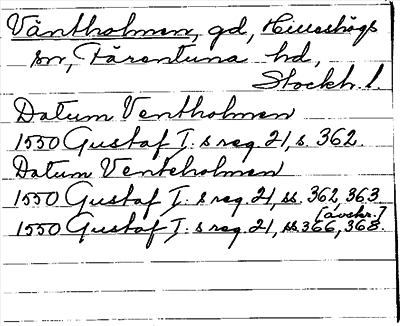 Väntholmen, gd, Hilleshögs
sn, Färentuna hd,
Stockh. l.
Datum Ventholmen
1550 Gustaf I. s reg. 21, s. 362.
Datum Venteholmen
1550 Gustaf I. s reg. 21, ss. 362, 363
[avskr.]
1550 Gustaf I. s reg. 21, ss. 366, 368.